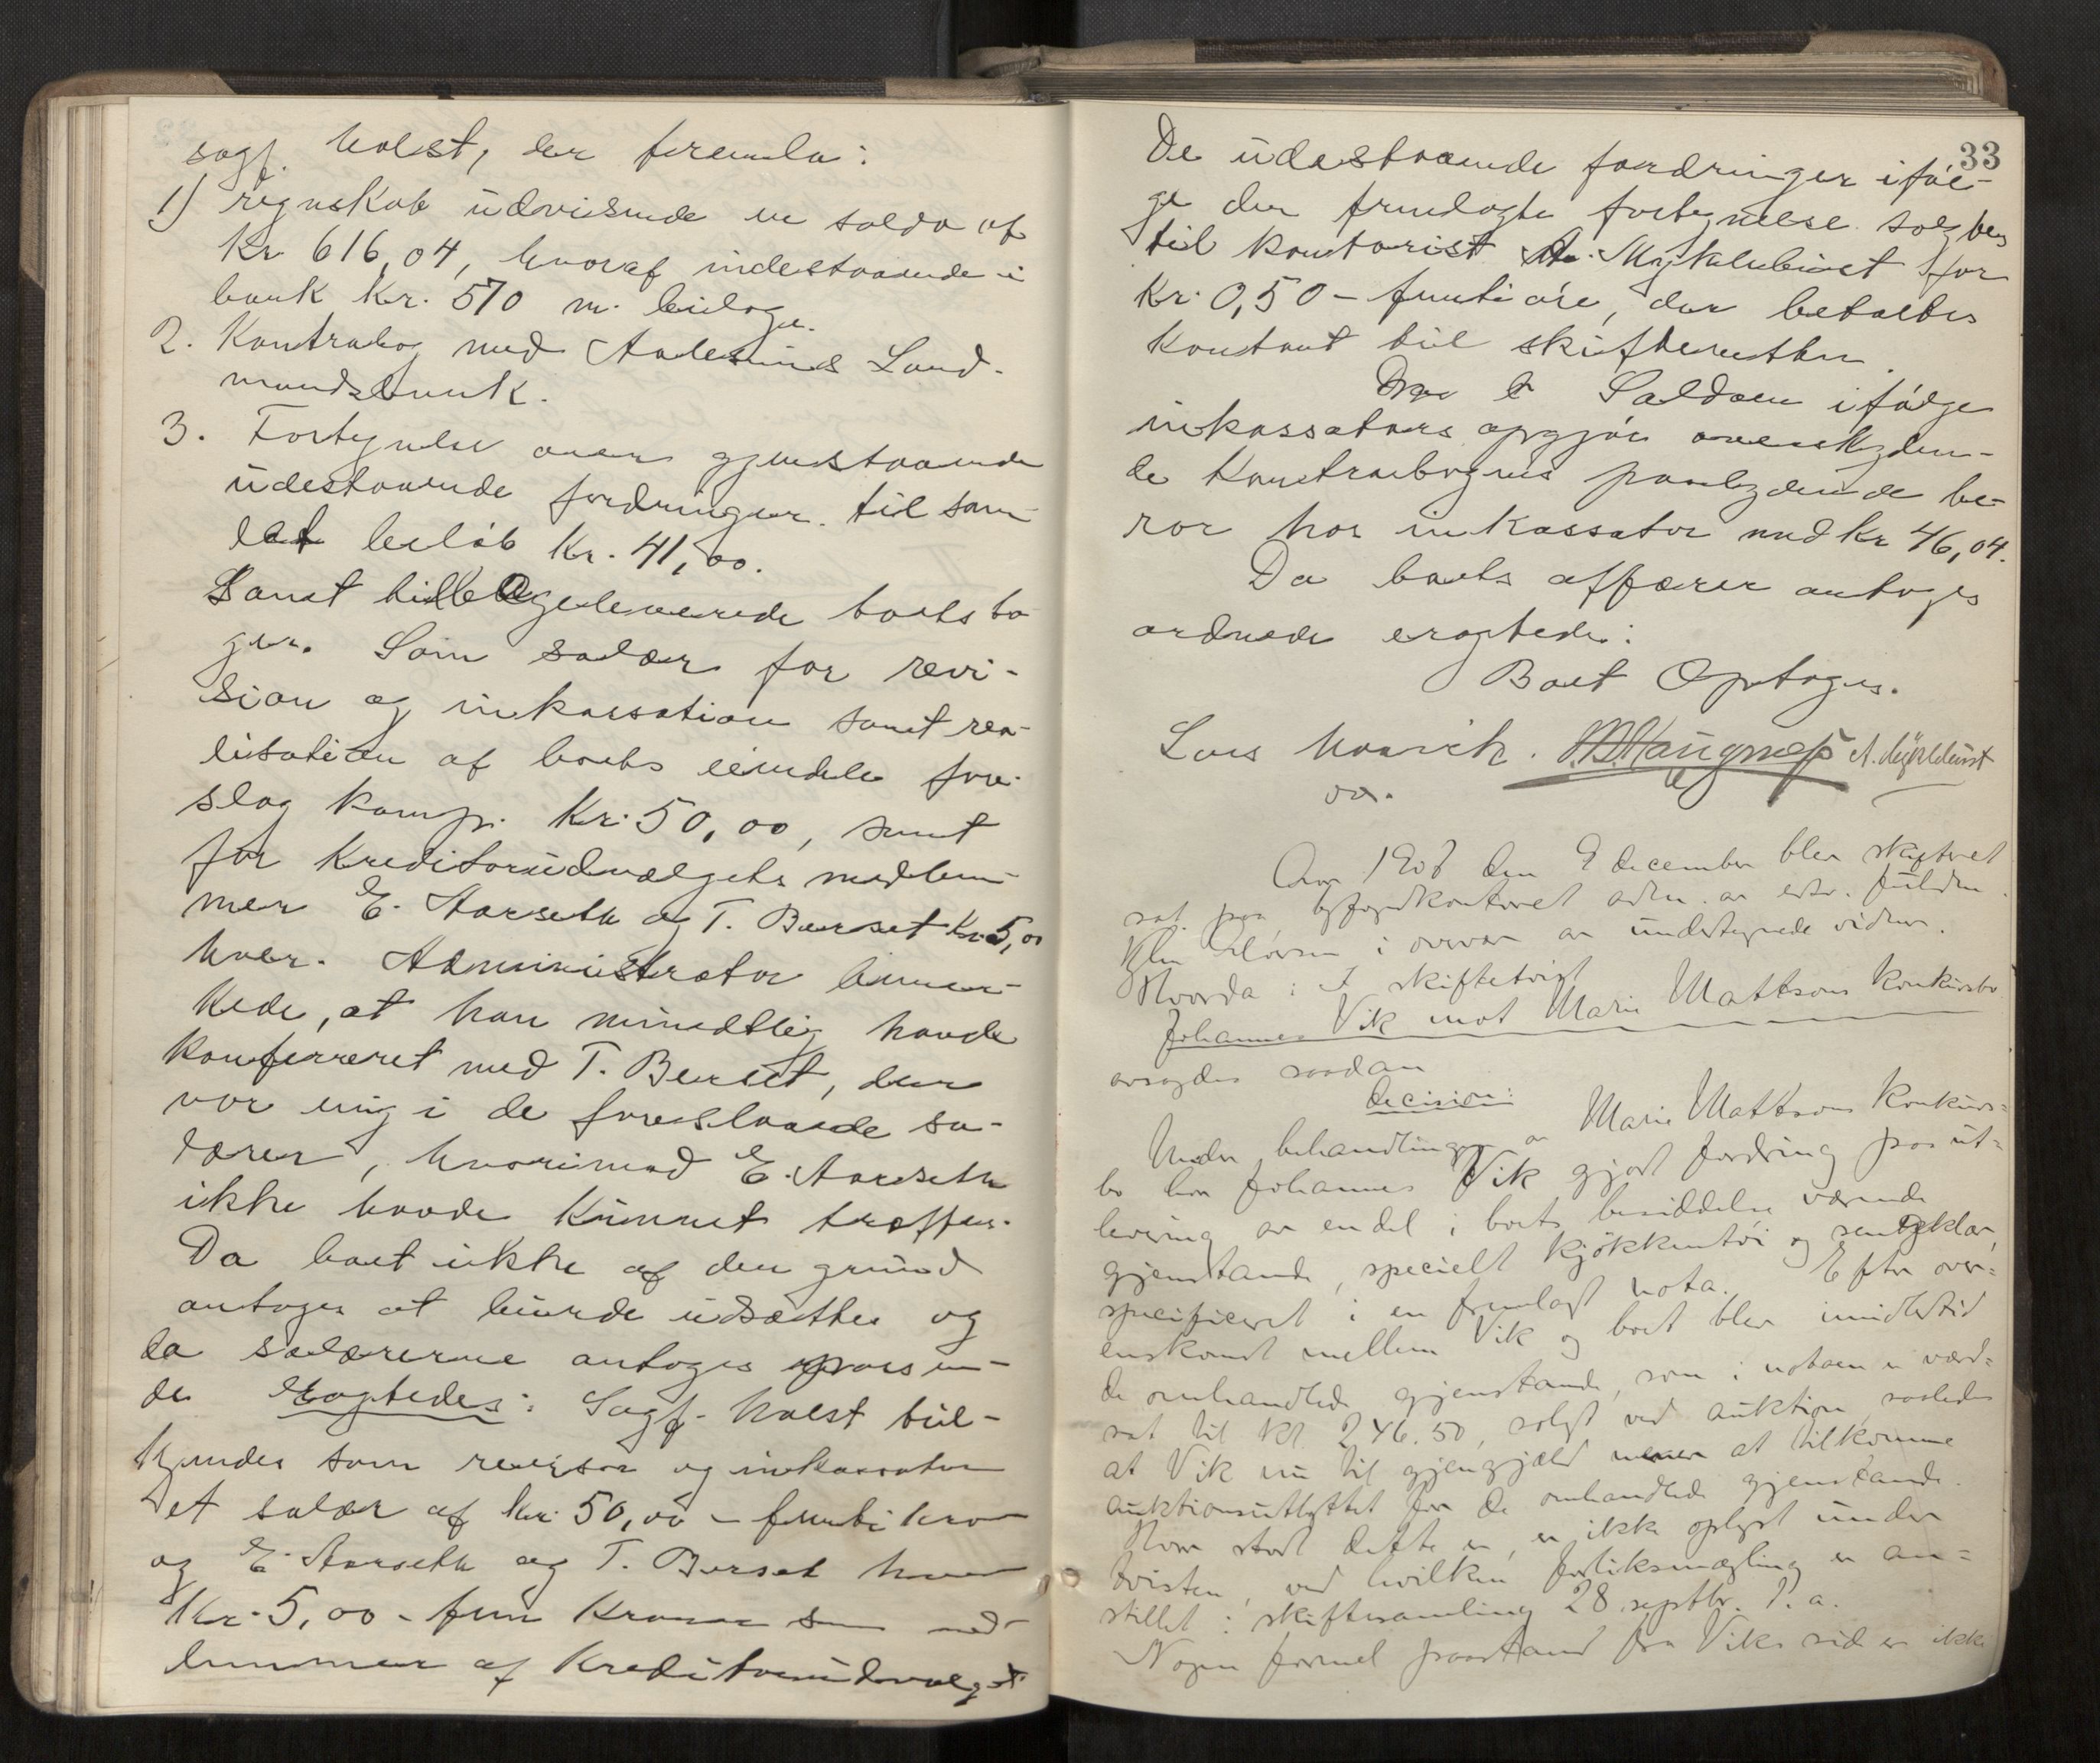 sagf. Holst, der fremla:
1) regnskab udvisende en saldo af
Kr 616,04, hvoraf indestaaende i
bank Kr. 570 m. bilage.
2. Kontrabog med Aalesunds Land-
mandsbank.
3. Fortegnelse over gjenstaaende
udestaaende fordringer. til sam-
let beløb Kr. 41,00.
Samt tilbageleverede boets bø-
ger. Som salær for revi-
sion og inkassation samt rea-
lisation af boets eiendele fore-
slog komp. Kr. 50,00, samt
for Kreditorudvalgets medlem-
mer E. Aarseth og T. Berset Kr. 5,00
hver. Administrator bemær-
kede, at han mundtlig havde
konfereret med T. Berset, der
var enig i de foreslaaede sa-
lærer, hvorimod E. Aarseth
ikke havde kunnet træffes.
Da boet ikke af den grund
antoges at burde udsættes og
da salærerne antoges passen-
de Eragtedes: Sagf. Holst til-
kjendes som revisor og inkassator
et salær af kr. 50,00 – femti kro
og E. Aarseth og T. Berset hver
Kr. 5,00 – fem Kroner som med-
lemmer af Kreditorudvalget
33
De udestaaende fordringer iføl-
ge den fremlagte fortegnelse solgtes
til kontorist A. Myklebust for
Kr. 0,50 – femti øre, der betaltes
Kontant til skifteretten.
Saldoen ifølge
inkassators opgjør overskyden-
de Kontrabogens paalydende be-
ror hos inkassator med kr 46,04.
Da boets affærer antoges
ordnede eragtedes:
Boet Optages.
Lars Maavik. A. Myklebust
Aar 1908 den 9 december blev skifteret
sat paa byfogdkontoret adm. av edsv. fuldm.
i overvær av undertegnede vidner.
Hvorda: I skiftetvist
Johannes Vik mot Marie Mattsons konkursbo
avsagdes saadan
decision:
Under behandlingen av Marie Mattsons konkurs-
bo har Johannes Vik gjort fordring paa ut-
levering av endel i boets besiddelse værende
gjenstande, specielt kjøkkentøi og sengeklær,
specificeret i en fremlagt nota. Efter over-
enskomst mellem Vik og boet blev imidlertid
de omhandlede gjenstande, som i notaen er værd-
sat til kr. 246.50, solgt ved auktion, saaledes
at Vik nu til gjengjæld mener at tilkomme
auktionsutbyttet for de omhandlede gjenstande.
Hvor stort dette er, er ikke oplyst under
tvisten, ved hvilken forliksmægling er an-
stillet i skiftesamling 28 septbr. d. a.
Nogen formel paastand fra Viks side er ikke